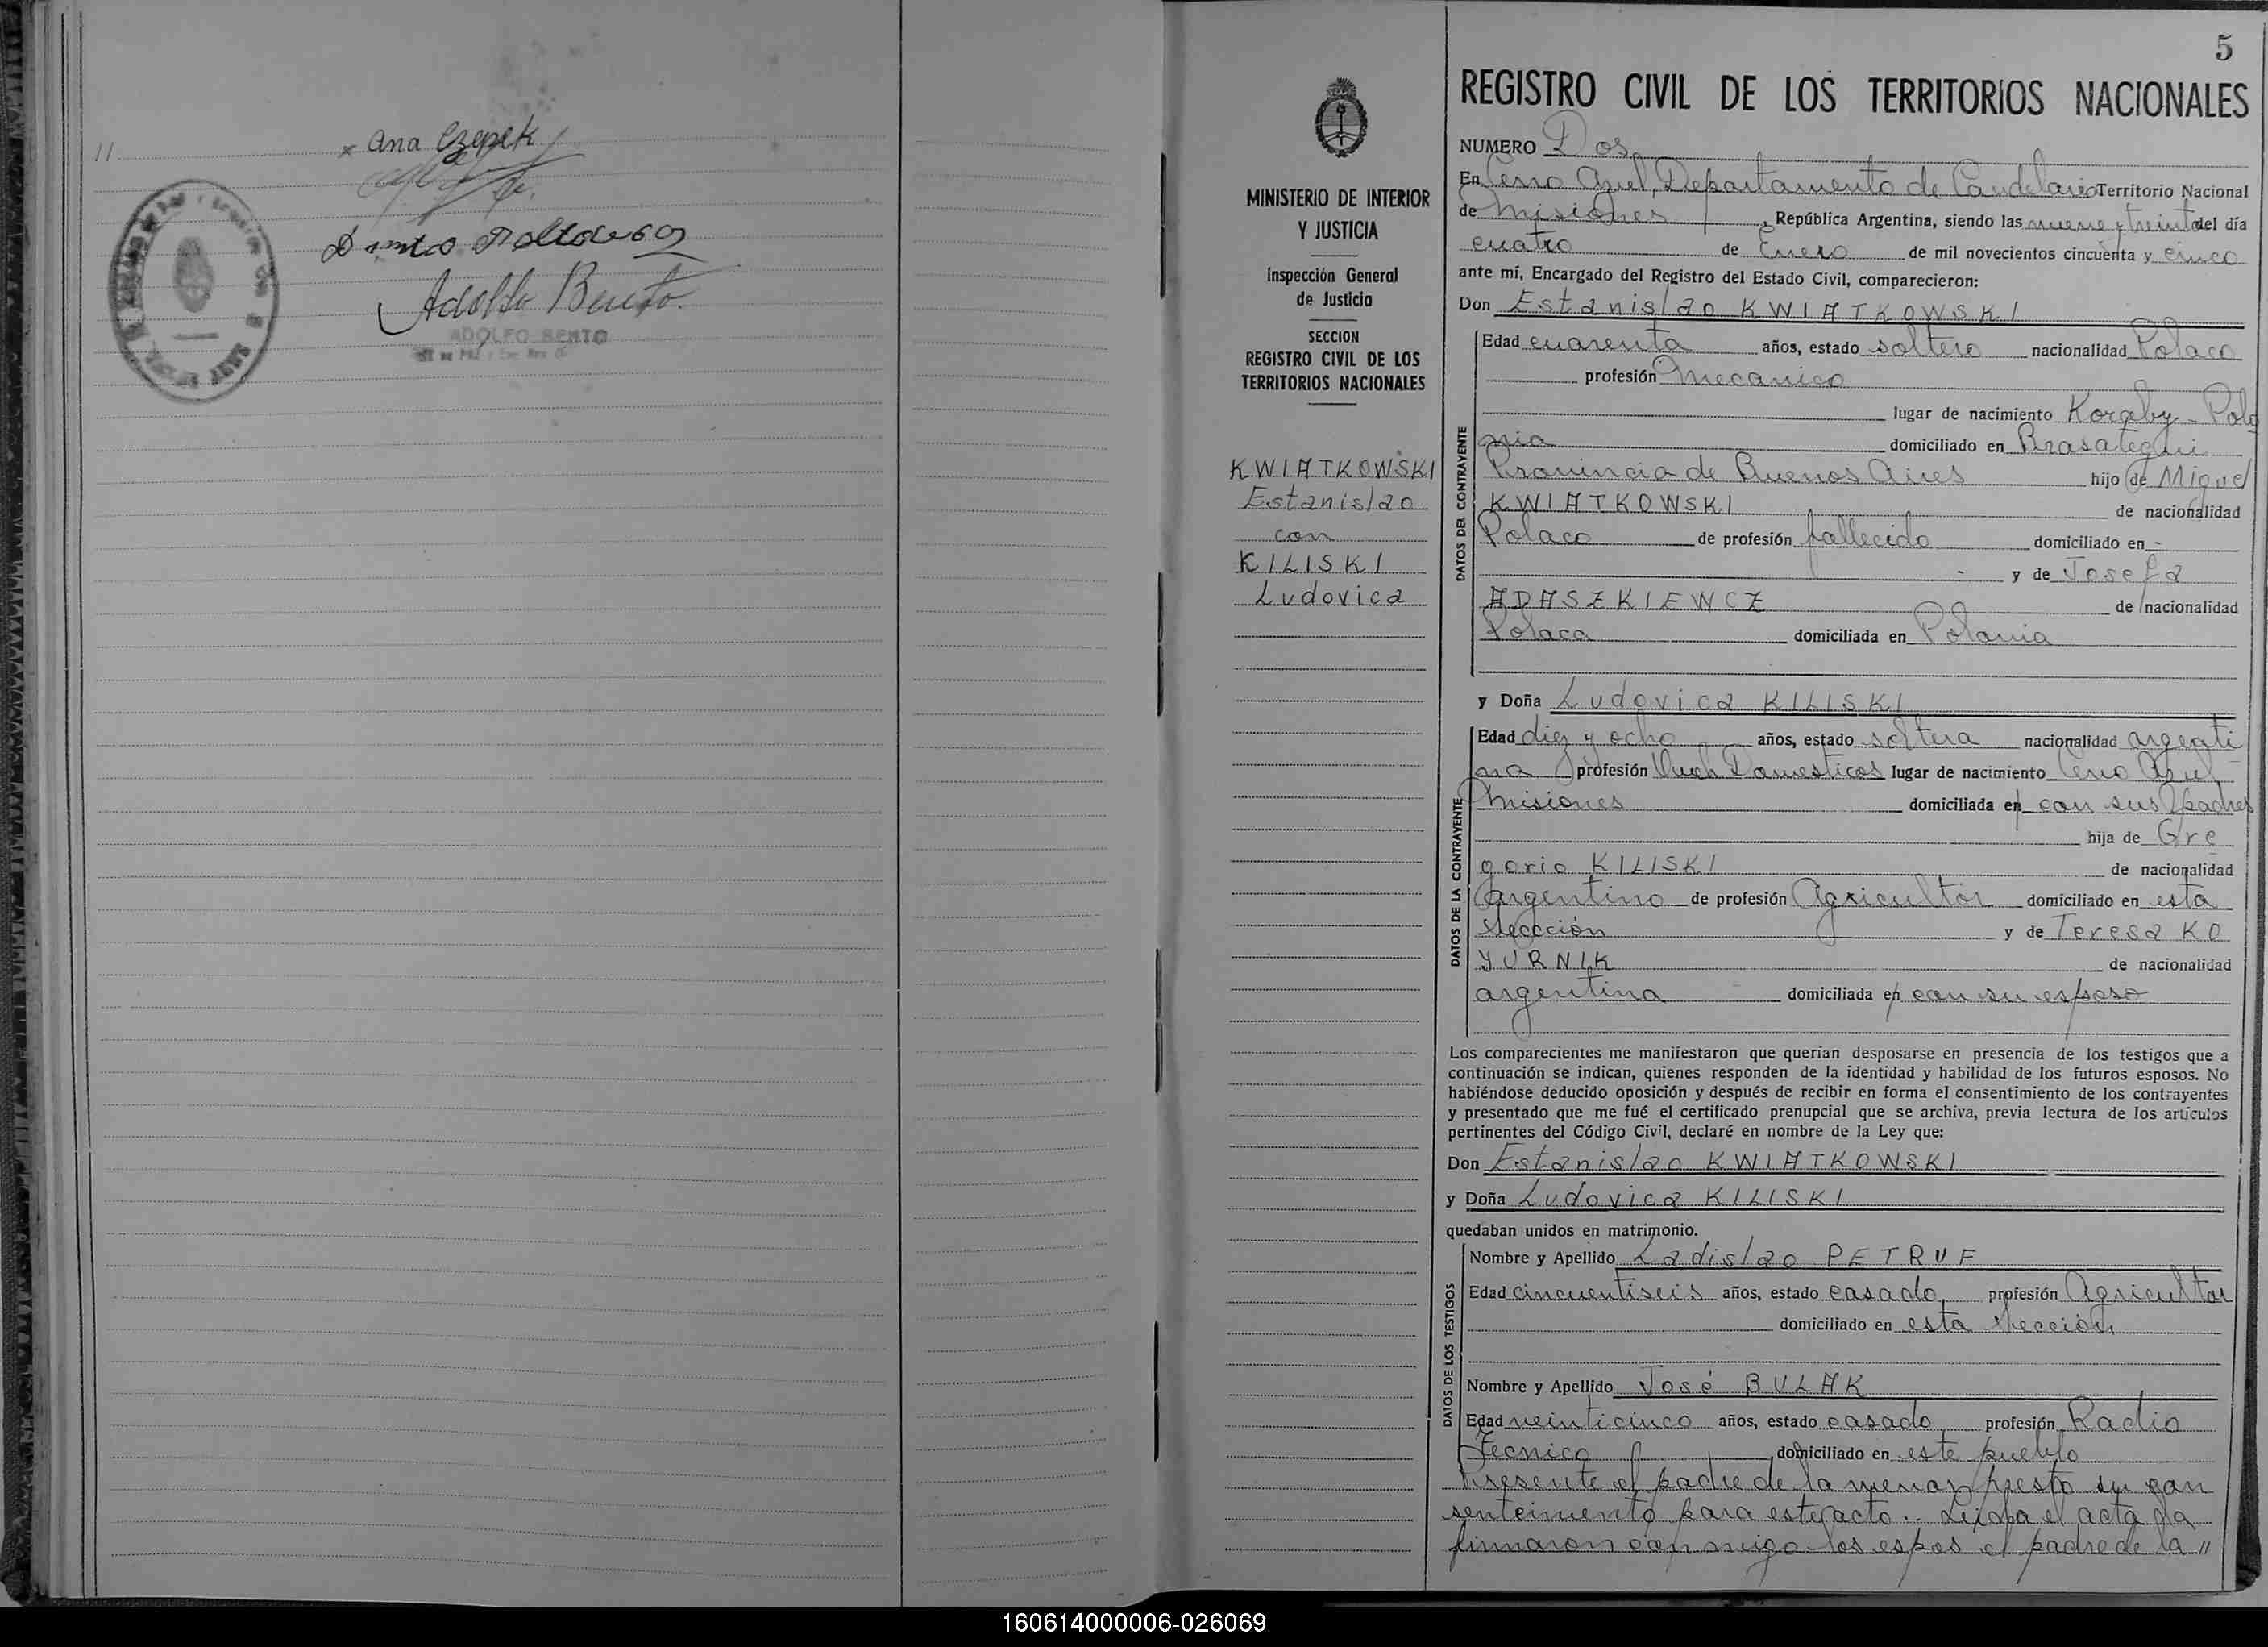 11
x Ana Czepek
Adolfo Bento
ADOLFO BENTO
5
REGISTRO CIVIL DE LOS TERRITORIOS NACIONALES
MINISTERIO DE INTERIOR
Y JUSTICIA
Inspección General
de Justicia
SECCION
REGISTRO CIVIL DE LOS
TERRITORIOS NACIONALES
KWIATKOWSKI
Estanislao
con
KILISKI
Ludovica
NUMERO Dos
En Cerro Azul, Departamento de Candelaria Territorio Nacional
de Misiones, República Argentina, siendo las nueve y treinta del día
cuatro de Enero de mil novecientos cincuenta y cinco
ante mí, Encargado del Registro del Estado Civil, comparecieron:
Don Estanislao KWIATKOWSKI
DATOS DEL CONTRAYENTE
Edad cuarenta años, estado soltero nacionalidad Polaco
profesión Mecanico
lugar de nacimiento Korgeby - Polo
nia domiciliado en Brasategui
Provincia de Buenos Aires hijo de Miguel
KWIATKOWSKI de nacionalidad
Polaco de profesión fallecido domiciliado en -
- y de Josefa
ADASZKIEWCZ de nacionalidad
Polaca domiciliada en Polonia
y Doña Ludovica KILISKI
DATOS DE LA CONTRAYENTE
Edad diez y ocho años, estado soltera nacionalidad argenti
na profesión Domesticos lugar de nacimiento Cerro Azul
Misiones domiciliada en con sus padres
hija de Gre
gorio KILISKI de nacionalidad
argentino de profesión Agricultor domiciliado en esta
Seccción y de Teresa KO
YURNIK de nacionalidad
argentina domiciliada en con su esposo
Los comparecientes me manifestaron que querían desposarse en presencia de los testigos que a
continuación se indican, quienes responden de la identidad y habilidad de los futuros esposos. No
habiéndose deducido oposición y después de recibir en forma el consentimiento de los contrayentes
y presentado que me fué el certificado prenupcial que se archiva, previa lectura de los artículos
pertinentes del Código Civil, declaré en nombre de la Ley que:
Don Estanislao KWIATKOWSKI
y Doña Ludovica KILISKI
quedaban unidos en matrimonio.
DATOS DE LOS TESTIGOS
Nombre y Apellido Ladislao PETRUF
Edad cincuentiseis años, estado casado profesión Agricultor
domiciliado en esta Sección
Nombre y Apellido José BULAK
Edad veinticinco años, estado casado profesión Radio
Tecnico domiciliado en este pueblo
Presente el padre de la menor presto su con
senteimiento para este acto.. Leida el acta la
firmaron con migo los espos el padre de la "
160614000006-026069